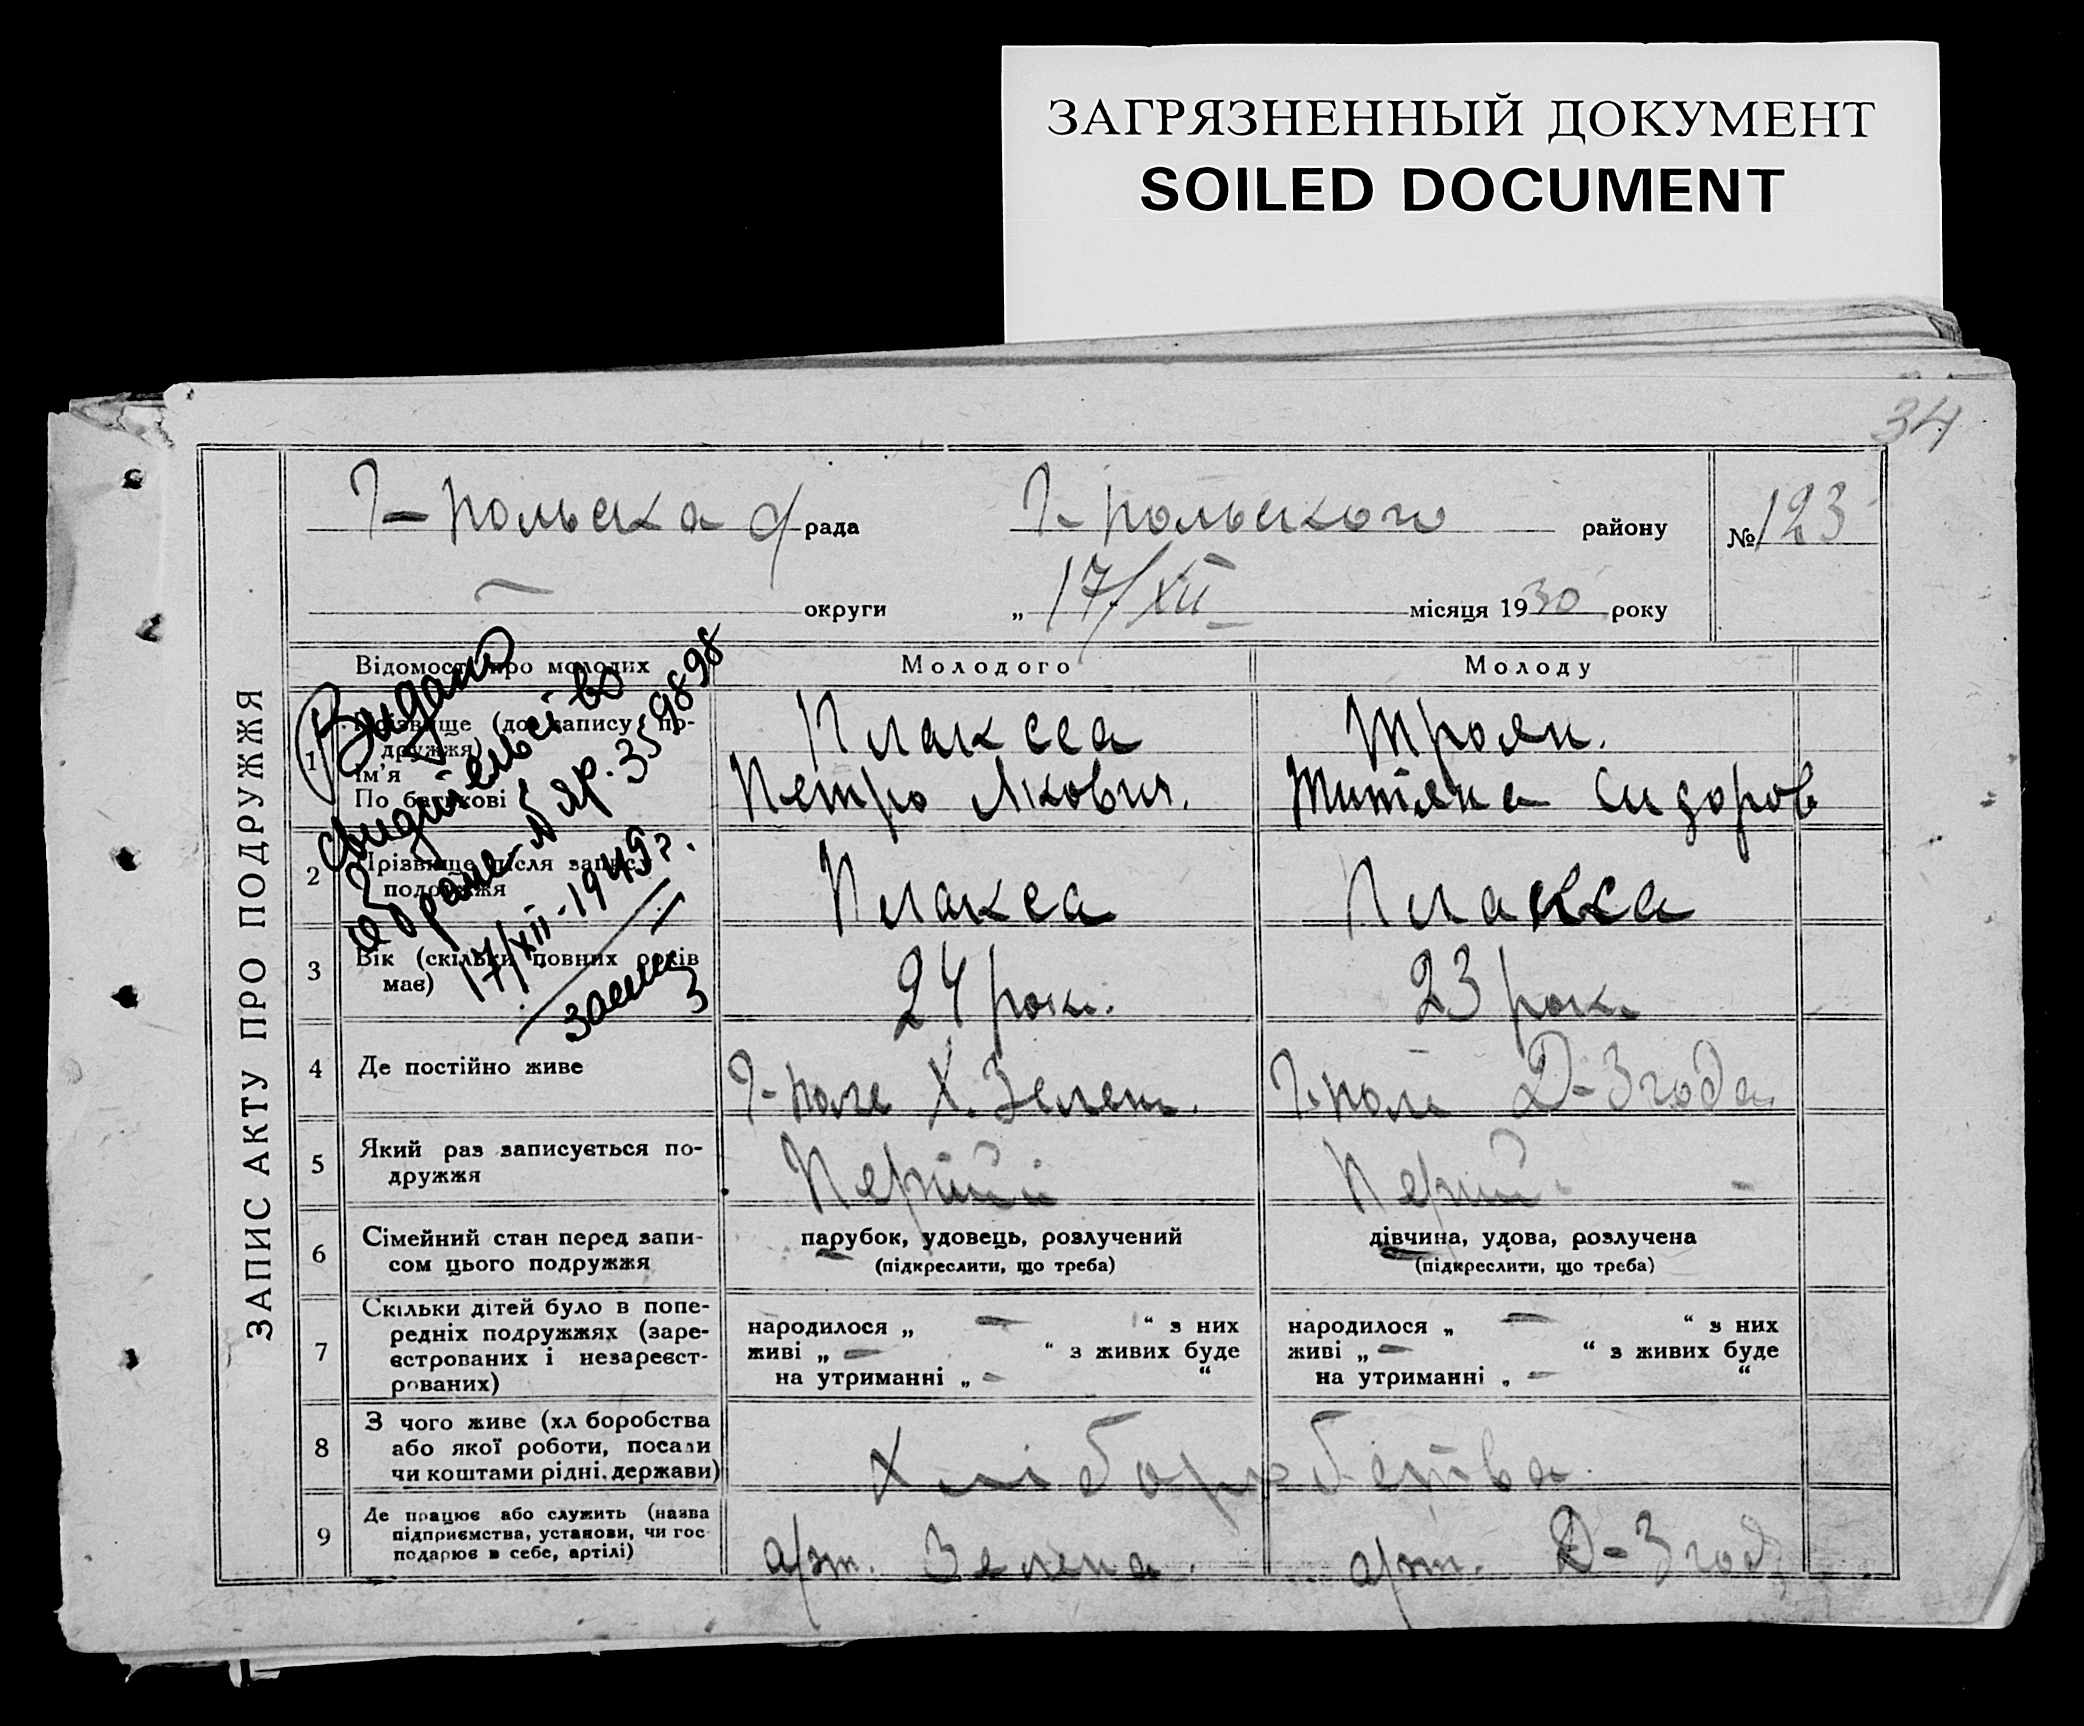 ЗАГРЯЗНЕННЫЙ ДОКУМЕНТ
SOILED DOCUMENT
34
ЗАПИС АКТУ ПРО ПОДРУЖЖЯ
Г-польська рада Г-польського району №123
— округи „ 17/XII місяця 1930 року
Відомості про молодих Молодого Молоду
1 Прізвище (до запису по-
дружжя) Плакса Троян.
Ім'я
По батькові Петро Якович. Титяна Сидоров
2 Прізвище після запису
подружжя Плакса Плакса
3 Вік (скільки повних років
має) 24 рок. 23 рок.
4 Де постійно живе Г-поле Х. Зелен. Г-поле Д-Згода
5 Який раз записується по-
дружжя Перший Перший
6 Сімейний стан перед запи-
сом цього подружжя
парубок, удовець, розлучений
(підкреслити, що треба)
дівчина, удова, розлучена
(підкреслити, що треба)
7 Скільки дітей було в попе-
редніх подружжях (заре-
єстрованих і незареєст-
рованих)
народилося „ — “ з них
живі „ — “ з живих буде
на утриманні „ — “
народилося „ — “ з них
живі „ — “ з живих буде
на утриманні „ — “
8 З чого живе (хл боробства
або якої роботи, посади
чи коштами рідні, держави)
Хліборобства
9 Де працює або служить (назва
підприємства, установи, чи гос
подарює в себе, артілі)
арт. Зелена. арт. Д-Згод
Видано
свидітельство
о браке № ЯР. 359898
17/XII-1949 г.